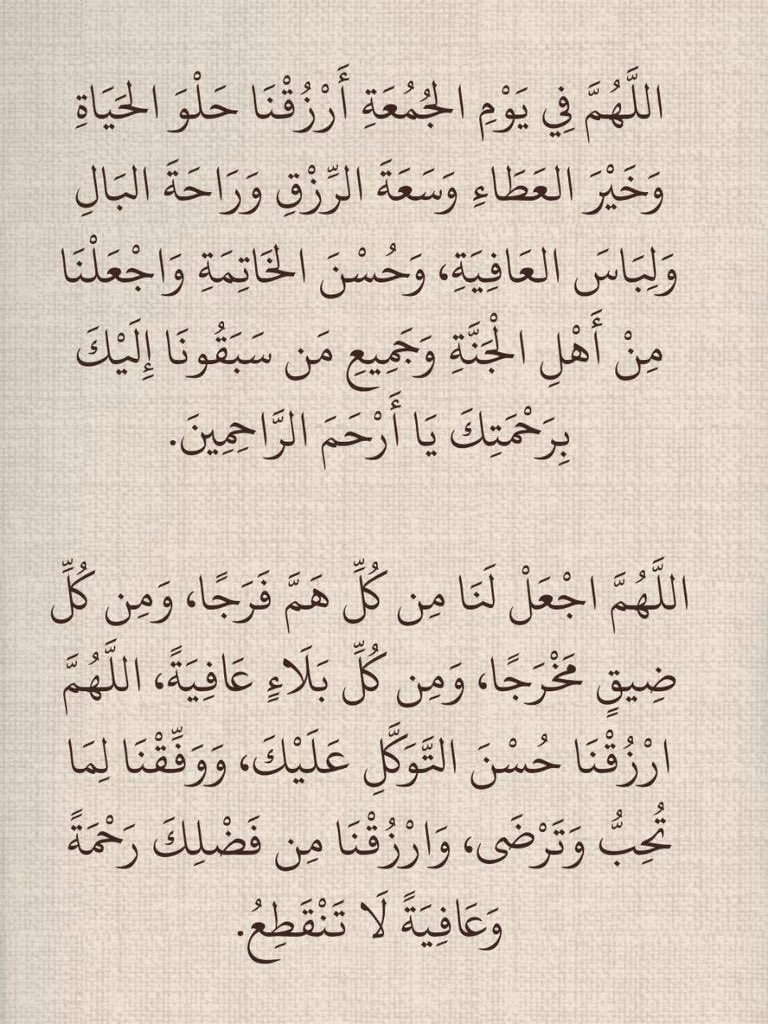 اللَّهُمَّ فِي يَوْمِ الجُمُعَةِ أَرْزُقْنَا حَلْوَ الحَيَاةِ
وَخَيْرَ العَطَاءِ وَسَعَةَ الرِّزْقِ وَرَاحَةَ البَالِ
وَلِبَاسَ العَافِيَةِ، وَحُسْنَ الخَاتِمَةِ وَاجْعَلْنَا
مِنْ أَهْلِ الْجَنَّةِ وَجَمِيعِ مَن سَبَقُونَا إِلَيْكَ
بِرَحْمَتِكَ يَا أَرْحَمَ الرَّاحِمِينَ.
اللَّهُمَّ اجْعَلْ لَنَا مِن كُلِّ هَمَّ فَرَجًا، وَمِن كُلِّ
ضِيقٍ مَخْرَجًا، وَمِن كُلِّ بَلَاءٍ عَافِيَةً، اللَّهُمَّ
ارْزُقْنَا حُسْنَ التَّوَكَّلِ عَلَيْكَ، وَوَفِّقْنَا لِمَا
تُحِبُّ وَتَرْضَى، وَارْزُقْنَا مِن فَضْلِكَ رَحْمَةً
وَعَافِيَةً لَا تَنْقَطِعُ.